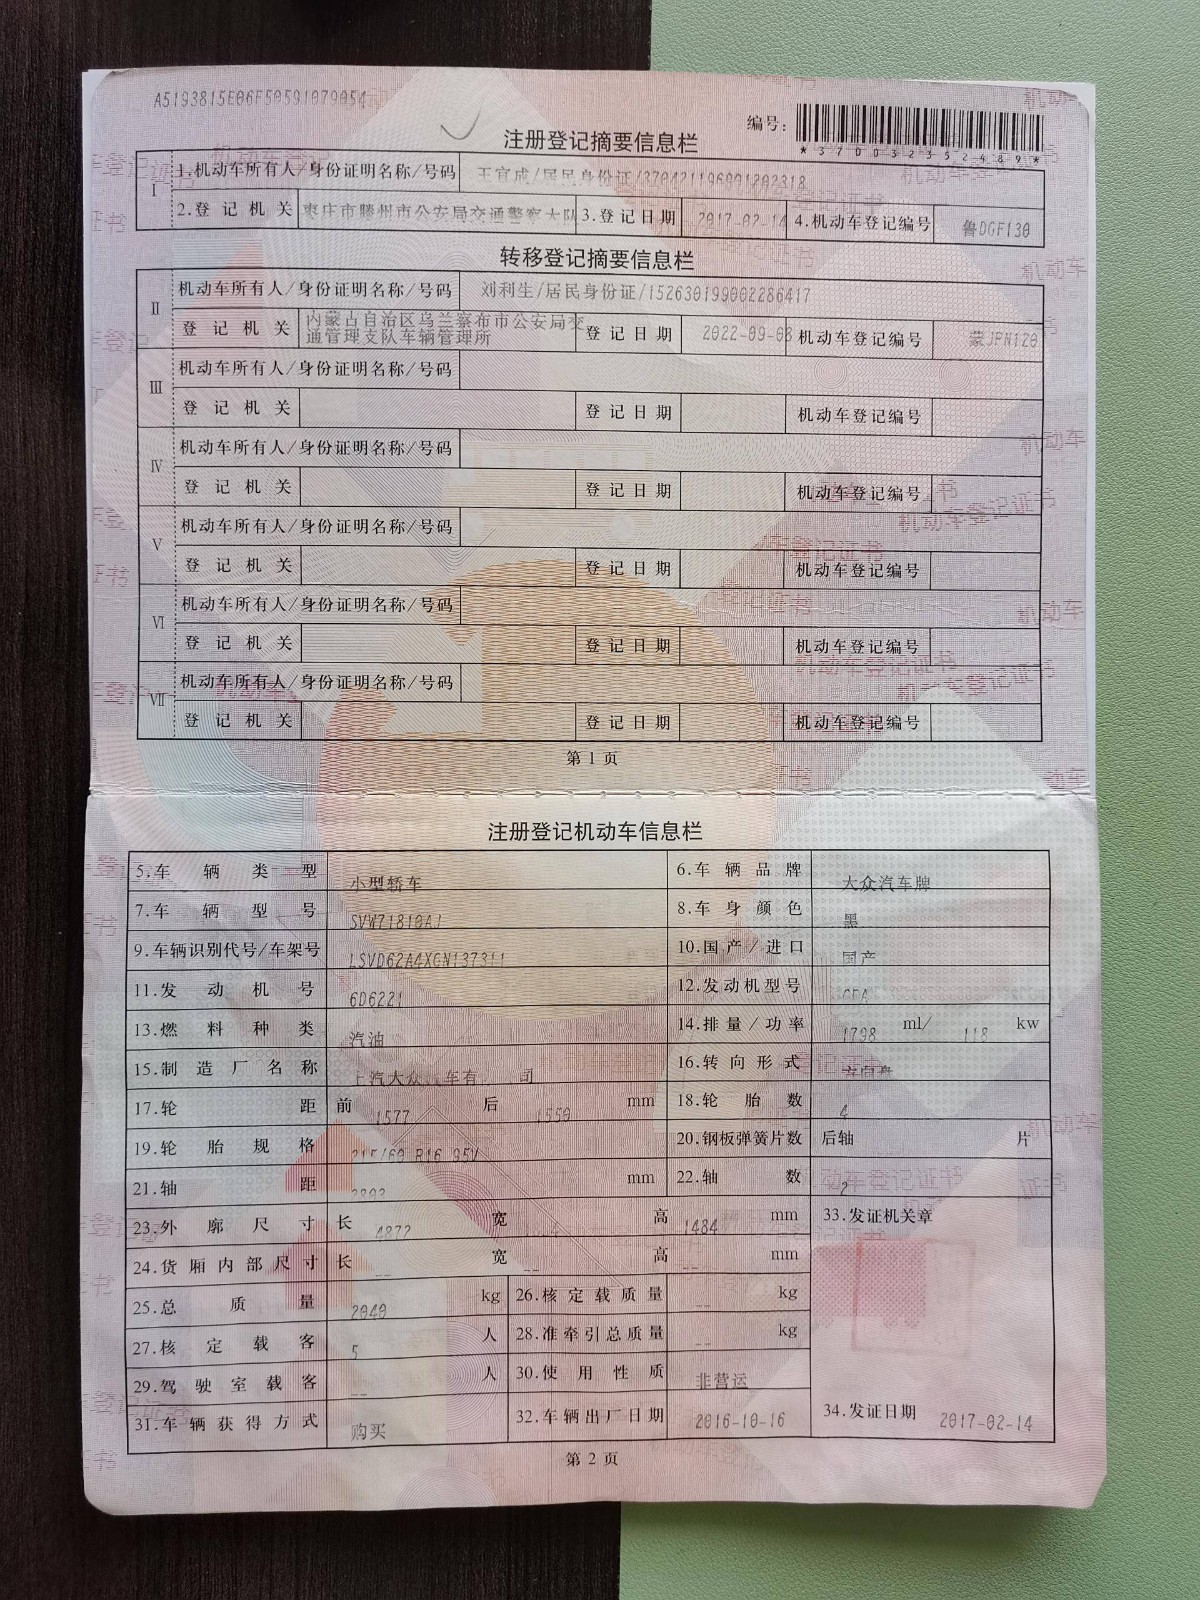 A5193815E06F50591079054
编号:
*370032352489*
注册登记摘要信息栏
Ⅰ 1.机动车所有人/身份证明名称/号码 王宜成/居民身份证/370421196901202318
2.登记机关 枣庄市滕州市公安局交通警察大队 3.登记日期 2017-02-14 4.机动车登记编号 鲁DGF130
转移登记摘要信息栏
Ⅱ 机动车所有人/身份证明名称/号码 刘利生/居民身份证/152630199002286417
登记机关 内蒙古自治区乌兰察布市公安局交通管理支队车辆管理所 登记日期 2022-09-08 机动车登记编号 蒙JPN120
Ⅲ 机动车所有人/身份证明名称/号码
登记机关 登记日期 机动车登记编号
Ⅳ 机动车所有人/身份证明名称/号码
登记机关 登记日期 机动车登记编号
Ⅴ 机动车所有人/身份证明名称/号码
登记机关 登记日期 机动车登记编号
Ⅵ 机动车所有人/身份证明名称/号码
登记机关 登记日期 机动车登记编号
Ⅶ 机动车所有人/身份证明名称/号码
登记机关 登记日期 机动车登记编号
第1页
注册登记机动车信息栏
5.车辆类型 小型轿车 6.车辆品牌 大众汽车牌
7.车辆型号 SVW71810AJ 8.车身颜色 黑
9.车辆识别代号/车架号 LSVD62A4XGN137311 10.国产/进口 国产
11.发动机号 6D6221 12.发动机型号
13.燃料种类 汽油 14.排量/功率 1798 ml/ 118 kw
15.制造厂名称 上汽大众汽车有 司 16.转向形式 方向盘
17.轮距 前 1577 后 1550 mm 18.轮胎数 4
19.轮胎规格 215/60 R16 95V 20.钢板弹簧片数 后轴 片
21.轴距 mm 22.轴数 2
23.外廓尺寸 长 4872 宽 高 1484 mm 33.发证机关章
24.货厢内部尺寸 长 -- 宽 -- 高 -- mm
25.总质量 2040 kg 26.核定载质量 -- kg
27.核定载客 5 人 28.准牵引总质量 -- kg
29.驾驶室载客 -- 人 30.使用性质 非营运
31.车辆获得方式 购买 32.车辆出厂日期 2016-10-16 34.发证日期 2017-02-14
第2页